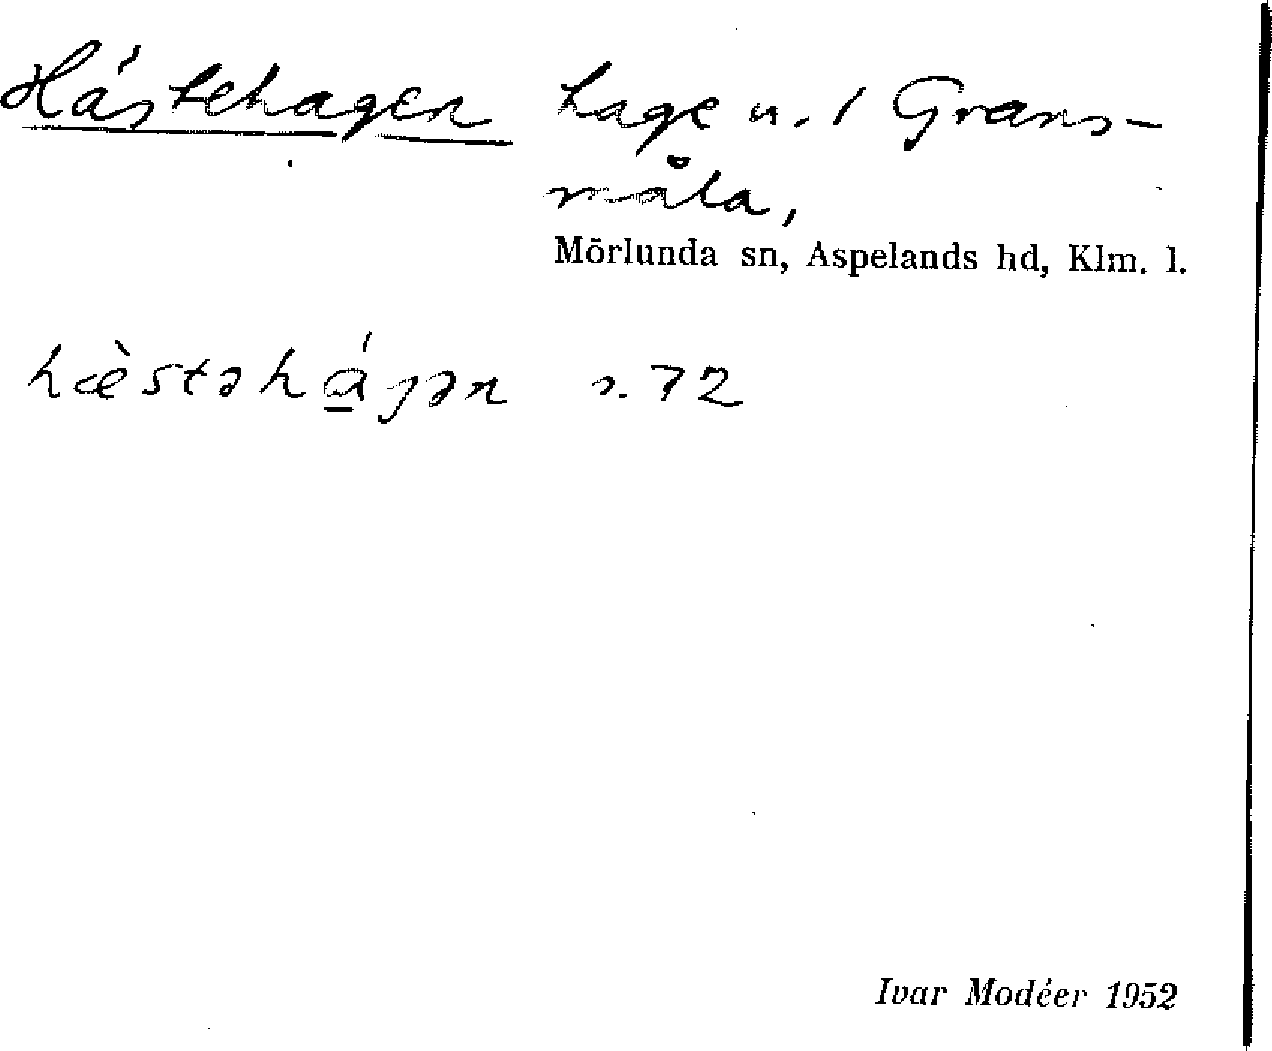 Hästehagen hage n. 1 Grans-
måla,
Mörlunda sn, Aspelands hd, Klm. l.
hæ̀stəhá̱gən s. 72
Ivar Modéer 1952